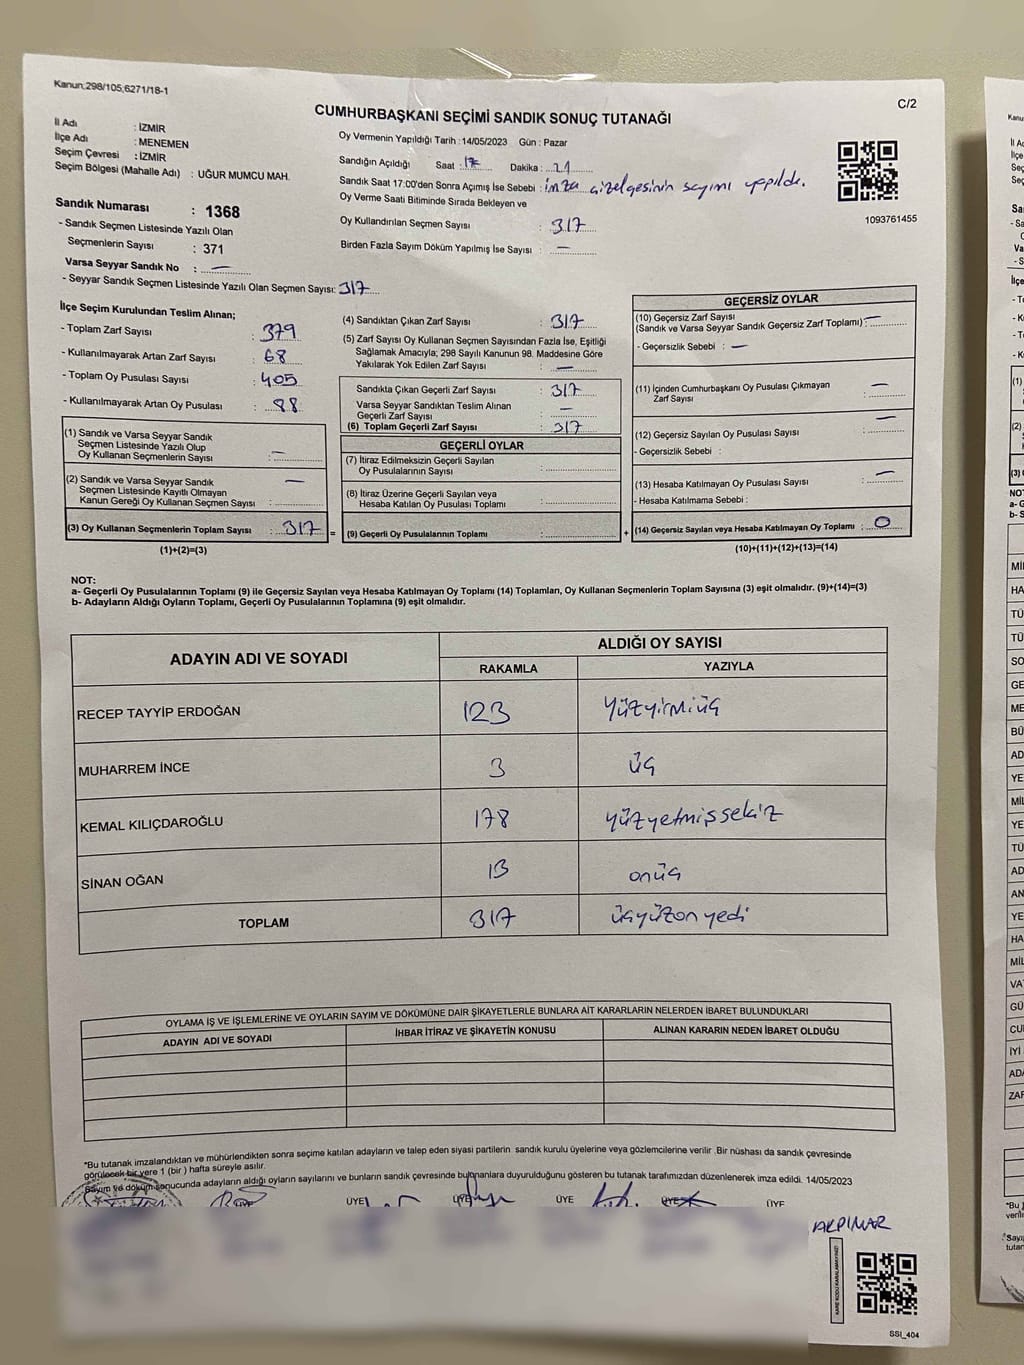 Kanun;298/105,6271/18-1
C/2
CUMHURBAŞKANI SEÇİMİ SANDIK SONUÇ TUTANAĞI
İl Adı : İZMİR
İlçe Adı : MENEMEN
Seçim Çevresi : İZMİR
Seçim Bölgesi (Mahalle Adı) : UĞUR MUMCU MAH.
Sandık Numarası : 1368
- Sandık Seçmen Listesinde Yazılı Olan
Seçmenlerin Sayısı : 371
Varsa Seyyar Sandık No : —
- Seyyar Sandık Seçmen Listesinde Yazılı Olan Seçmen Sayısı: 317
Oy Vermenin Yapıldığı Tarih : 14/05/2023 Gün : Pazar
Sandığın Açıldığı Saat : 17 Dakika : 21
Sandık Saat 17:00'den Sonra Açımış İse Sebebi : imza çizelgesinin sayımı yapıldı.
Oy Verme Saati Bitiminde Sırada Bekleyen ve
Oy Kullandırılan Seçmen Sayısı : 317
Birden Fazla Sayım Döküm Yapılmış İse Sayısı : —
1093761455
İlçe Seçim Kurulundan Teslim Alınan;
- Toplam Zarf Sayısı : 379
- Kullanılmayarak Artan Zarf Sayısı : 68
- Toplam Oy Pusulası Sayısı : 405
- Kullanılmayarak Artan Oy Pusulası : 88
(1) Sandık ve Varsa Seyyar Sandık
Seçmen Listesinde Yazılı Olup
Oy Kullanan Seçmenlerin Sayısı : —
(2) Sandık ve Varsa Seyyar Sandık
Seçmen Listesinde Kayıtlı Olmayan
Kanun Gereği Oy Kullanan Seçmen Sayısı : —
(3) Oy Kullanan Seçmenlerin Toplam Sayısı : 317
(1)+(2)=(3)
=
(4) Sandıktan Çıkan Zarf Sayısı : 317
(5) Zarf Sayısı Oy Kullanan Seçmen Sayısından Fazla İse, Eşitliği
Sağlamak Amacıyla; 298 Sayılı Kanunun 98. Maddesine Göre
Yakılarak Yok Edilen Zarf Sayısı : —
Sandıkta Çıkan Geçerli Zarf Sayısı : 317
Varsa Seyyar Sandıktan Teslim Alınan
Geçerli Zarf Sayısı : —
(6) Toplam Geçerli Zarf Sayısı : 317
GEÇERLİ OYLAR
(7) İtiraz Edilmeksizin Geçerli Sayılan
Oy Pusulalarının Sayısı :
(8) İtiraz Üzerine Geçerli Sayılan veya
Hesaba Katılan Oy Pusulası Toplamı :
(9) Geçerli Oy Pusulalarının Toplamı :
+
GEÇERSİZ OYLAR
(10) Geçersiz Zarf Sayısı
(Sandık ve Varsa Seyyar Sandık Geçersiz Zarf Toplamı) : —
- Geçersizlik Sebebi : —
(11) İçinden Cumhurbaşkanı Oy Pusulası Çıkmayan
Zarf Sayısı : —
(12) Geçersiz Sayılan Oy Pusulası Sayısı : —
- Geçersizlik Sebebi :
(13) Hesaba Katılmayan Oy Pusulası Sayısı : —
- Hesaba Katılmama Sebebi :
(14) Geçersiz Sayılan veya Hesaba Katılmayan Oy Toplamı : 0
(10)+(11)+(12)+(13)=(14)
NOT:
a- Geçerli Oy Pusulalarının Toplamı (9) ile Geçersiz Sayılan veya Hesaba Katılmayan Oy Toplamı (14) Toplamları, Oy Kullanan Seçmenlerin Toplam Sayısına (3) eşit olmalıdır. (9)+(14)=(3)
b- Adayların Aldığı Oyların Toplamı, Geçerli Oy Pusulalarının Toplamına (9) eşit olmalıdır.
ADAYIN ADI VE SOYADI
ALDIĞI OY SAYISI
RAKAMLA YAZIYLA
RECEP TAYYİP ERDOĞAN 123 yüzyirmiüç
MUHARREM İNCE 3 üç
KEMAL KILIÇDAROĞLU 178 yüzyetmişsekiz
SİNAN OĞAN 13 onüç
TOPLAM 317 üçyüzonyedi
OYLAMA İŞ VE İŞLEMLERİNE VE OYLARIN SAYIM VE DÖKÜMÜNE DAİR ŞİKAYETLERLE BUNLARA AİT KARARLARIN NELERDEN İBARET BULUNDUKLARI
ADAYIN ADI VE SOYADI İHBAR İTİRAZ VE ŞİKAYETİN KONUSU ALINAN KARARIN NEDEN İBARET OLDUĞU
*Bu tutanak imzalandıktan ve mühürlendikten sonra seçime katılan adayların ve talep eden siyasi partilerin sandık kurulu üyelerine veya gözlemcilerine verilir .Bir nüshası da sandık çevresinde
görülecek bir yere 1 (bir ) hafta süreyle asılır.
Sayım ve döküm sonucunda adayların aldığı oyların sayılarını ve bunların sandık çevresinde bulunanlara duyurulduğunu gösteren bu tutanak tarafımızdan düzenlenerek imza edildi. 14/05/2023
ÜYE ÜYE ÜYE ÜYE ÜYE ÜYE
AKPINAR
KARE KODU KARALAMAYINIZ!
SSI_404